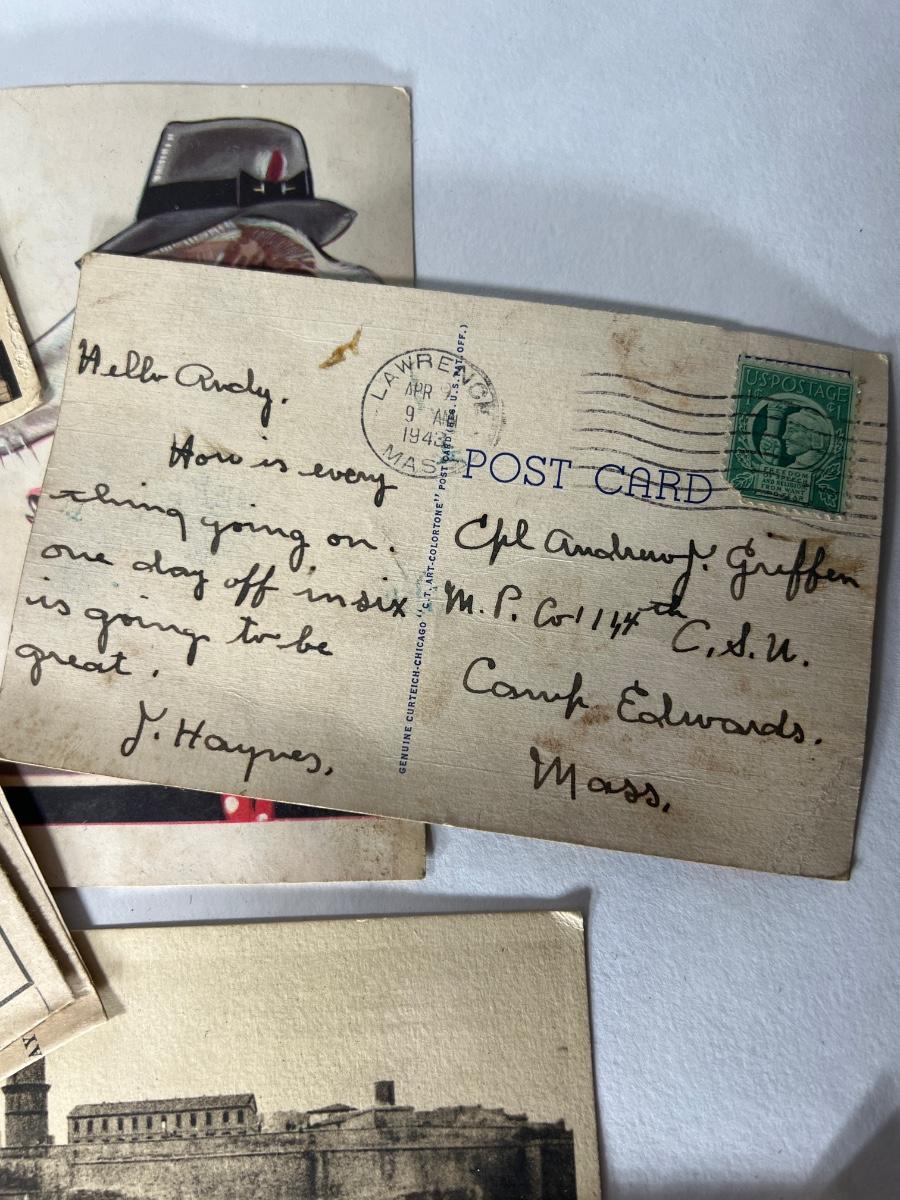 Hello Andy.
How is every
thing going on.
one day off in six
is going to be
great.
J. Haynes,
LAWRENCE
APR
9 AM
1943
MASS
GENUINE CURTEICH-CHICAGO "C.T. ART-COLORTONE" POST CARD (REG. U.S. PAT. OFF.)
POST CARD
U·S·POSTAGE
1¢
FREEDOM
OF SPEECH
AND RELIGION
FROM WANT
AND FEAR
Cpl Andrew J. Griffen
M. P. Co 114th C.S.U.
Camp Edwards.
Mass.
AY